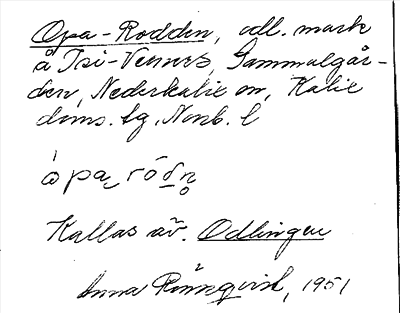 Opa-Rodden, odl. mark
å Isi-Vennes, Gammalgår-
den, Nederkalix sn, Kalix
doms. tg, Nonb. l
Kallas äv. Odlingen
Anna Rönnqvist, 1951